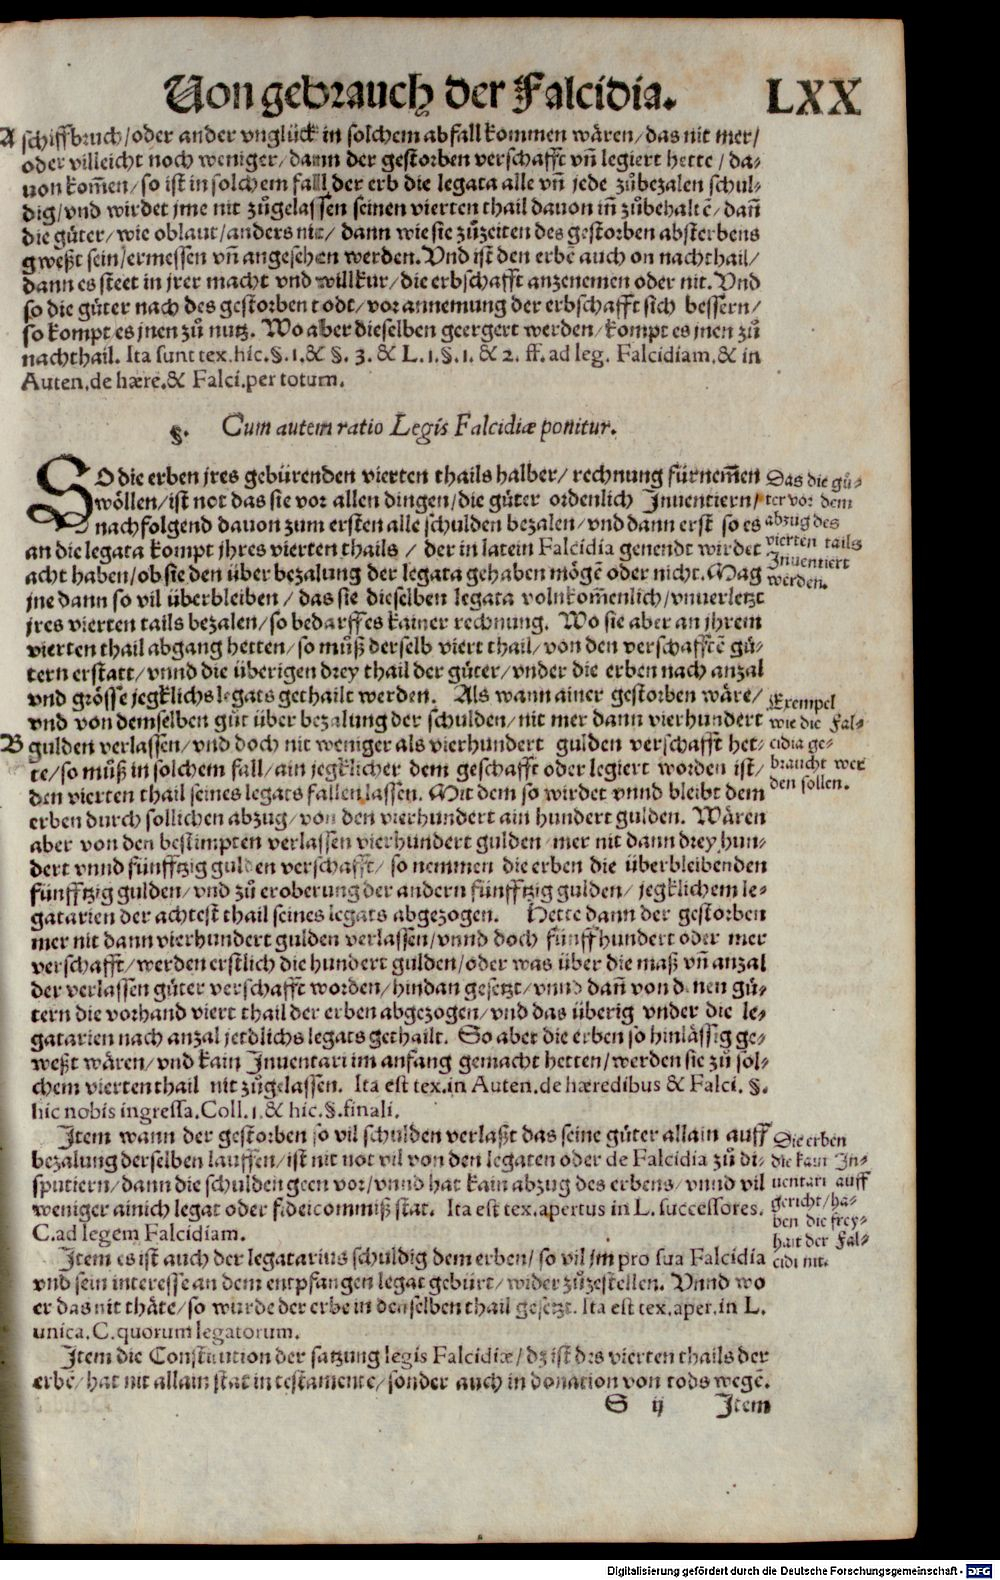 Von gebrauch der Falcidia. LXX
A schiffbruch/oder ander vnglück in solchem abfall kommen wären/das nit mer/
oder villeicht noch weniger/dann der gestorben verschafft vñ legiert hette/da-
uon kom̃en/so ist in solchem fall der erb die legata alle vñ jede zůbezalen schul-
dig/vnd wirdet jme nit zůgelassen seinen vierten thail dauon iñ zůbehaltē/dañ
die güter/wie oblaut/anders nit/dann wie sie zůzeiten des gestorben absterbens
gweßt sein/ermessen vñ angesehen werden. Vnd ist den erbē auch on nachthail/
dann es steet in jrer macht vnd willkur/die erbschafft anzenemen oder nit. Vnd
so die güter nach des gestorben todt/vor annemung der erbschafft sich bessern/
so kompt es jnen zů nutz. Wo aber dieselben geergert werden/kompt es jnen zů
nachthail. Ita sunt tex.hic.§.1.& §.3.& L.1.§.1.& 2.ff.ad leg. Falcidiam.& in
Auten.de hære.& Falci.per totum.
§. Cum autem ratio Legis Falcidiæ ponitur.
SO die erben jres gebürenden vierten thails halber/rechnung fürnem̃en
wöllen/ist not das sie vor allen dingen/die güter ordenlich Inuentiern/
nachfolgend dauon zum ersten alle schulden bezalen/vnd dann erst so es
an die legata kompt jhres vierten thails/der in latein Falcidia genendt wirdet
acht haben/ob sie den über bezalung der legata gehaben mögē oder nicht. Mag
jne dann so vil überbleiben/das sie dieselben legata volnkom̃enlich/vnuerletzt
jres vierten tails bezalen/so bedarff es kainer rechnung. Wo sie aber an jhrem
vierten thail abgang hetten/so můß derselb viert thail/von den verschafftē gü-
tern erstatt/vnnd die überigen drey thail der güter/vnder die erben nach anzal
vnd grösse jegklichs legats gethailt werden. Als wann ainer gestorben wäre/
vnd von demselben gůt über bezalung der schulden/nit mer dann vierhundert
B gulden verlassen/vnd doch nit weniger als vierhundert gulden verschafft het-
te/so můß in solchem fall/ain jegklicher dem geschafft oder legiert worden ist/
den vierten thail seines legats fallen lassen. Mit dem so wirdet vnnd bleibt dem
erben durch sollichen abzug/von den vierhundert ain hundert gulden. Wären
aber von den bestimpten verlassen vierhundert gulden/mer nit dann drey hun-
dert vnnd fünfftzig gulden verschafft/so nemmen die erben die überbleibenden
fünfftzig gulden/vnd zů eroberung der andern fünfftzig gulden/jegklichem le-
gatarien der achtest thail seines legats abgezogen. Hette dann der gestorben
mer nit dann vierhundert gulden verlassen/vnnd doch fünffhundert oder mer
verschafft/werden erstlich die hundert gulden/oder was über die maß vñ anzal
der verlassen güter verschafft worden/hindan gesetzt/vnnd dañ von denen gü-
tern die vorhand viert thail der erben abgezogen/vnd das überig vnder die le-
gatarien nach anzal jetdlichs legats gethailt. So aber die erben so hinlässig ge-
weßt wären/vnd kain Inuentari im anfang gemacht hetten/werden sie zů sol-
chem vierten thail nit zůgelassen. Ita est tex.in Auten.de hæredibus & Falci.§.
hic nobis ingressa.Coll.1.& hic.§.finali.
Item wann der gestorben so vil schulden verlaßt das seine güter allain auff
bezalung derselben lauffen/ist nit not vil von den legaten oder de Falcidia zů di-
sputiern/dann die schulden geen vor/vnnd hat kain abzug des erbens/vnnd vil
weniger ainich legat oder fideicommiß stat. Ita est tex.apertus in L. successores.
C.ad legem Falcidiam.
Item es ist auch der legatarius schuldig dem erben/so vil jm pro sua Falcidia
vnd sein interesse an dem entpfangen legat gebürt/wider zůzestellen. Vnnd wo
er das nit thäte/so wurde der erbe in denselben thail gesetzt. Ita est tex.aper.in L.
unica.C.quorum legatorum.
Item die Constitution der satzung legis Falcidiæ/dz ist des vierten thails der
erbē/hat nit allain stat in testamente/sonder auch in donation von tods wegē.
S ij Item
Das die gü-
ter vor dem
abzug des
vierten tails
Inuentiert
werden.
Exempel
wie die Fal-
cidia ge-
braucht wer
den sollen.
Die erben
die kain In-
uentari auff
gericht/ha-
ben die frey-
hait der Fal-
cidi nit.
Digitalisierung gefördert durch die Deutsche Forschungsgemeinschaft - DFG